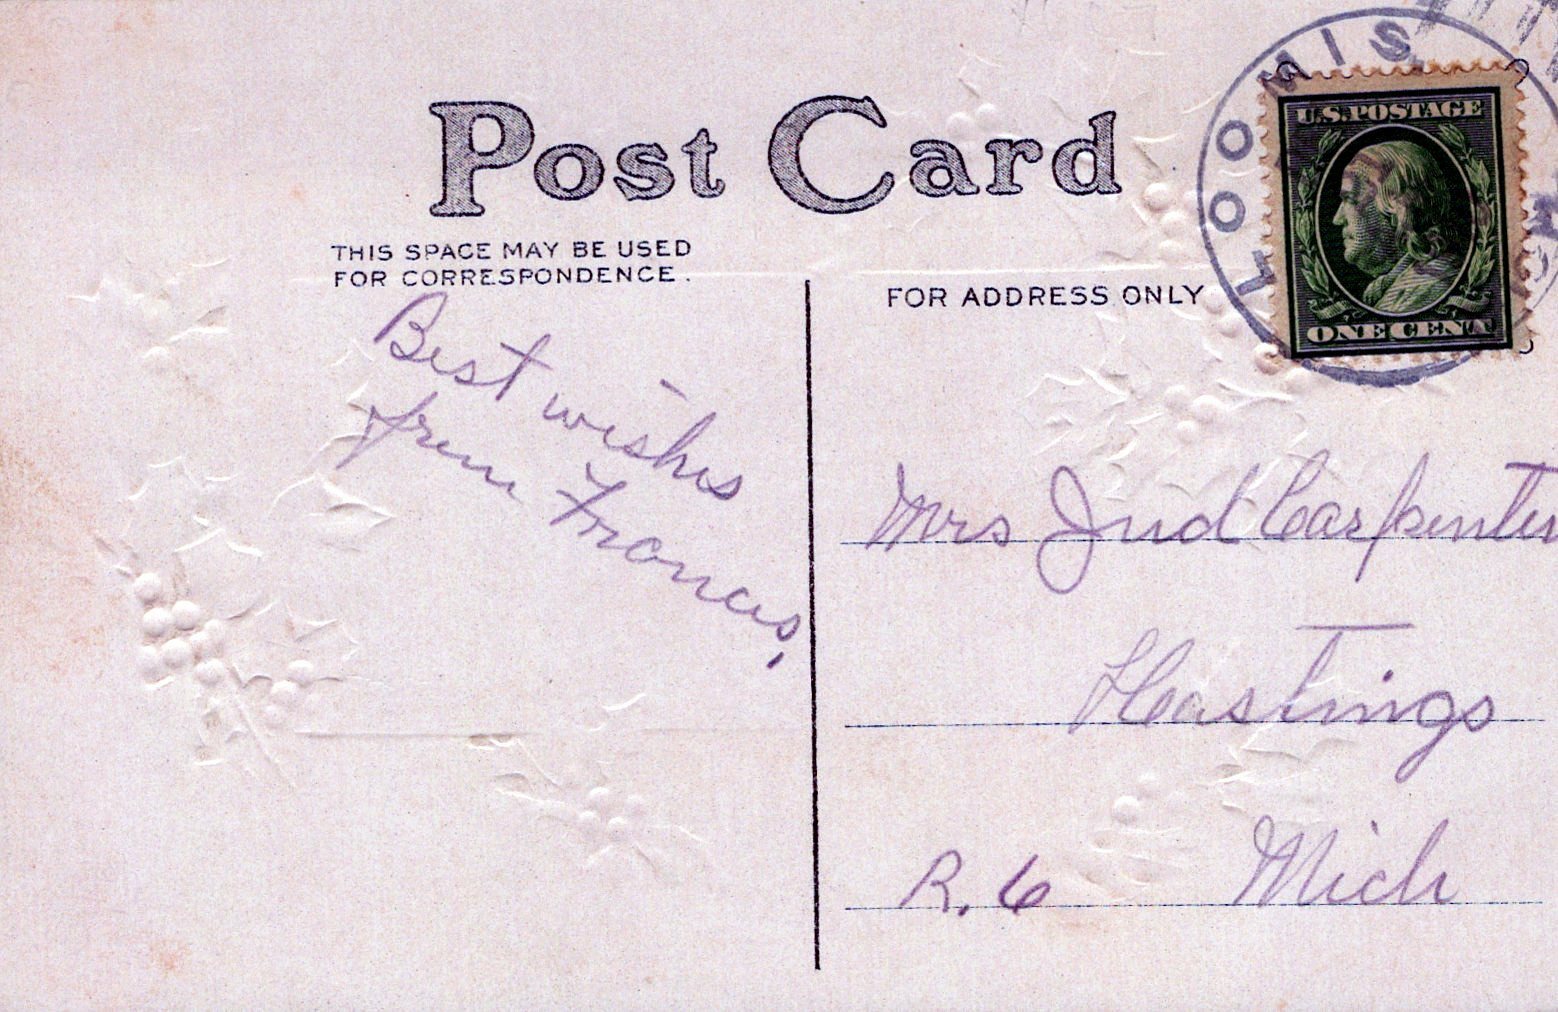 Post Card
THIS SPACE MAY BE USED
FOR CORRESPONDENCE.
FOR ADDRESS ONLY
LOOMIS
U.S. POSTAGE
ONE CENT
Best wishes
from Francis,
Mrs Jud Carpenter
Hastings
R. 6 Mich